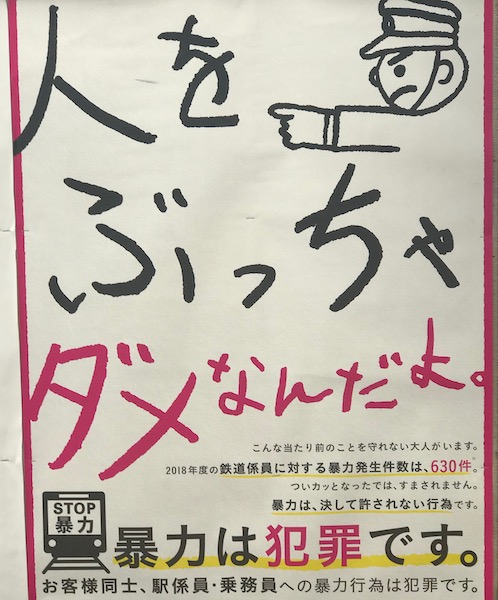 人を
ぶっちゃ
ダメなんだよ。
こんな当たり前のことを守れない大人がいます。
2018年度の鉄道係員に対する暴力発生件数は、630件。
ついカッとなったでは、すまされません。
暴力は、決して許されない行為です。
STOP
暴力
暴力は犯罪です。
お客様同士、駅係員・乗務員への暴力行為は犯罪です。